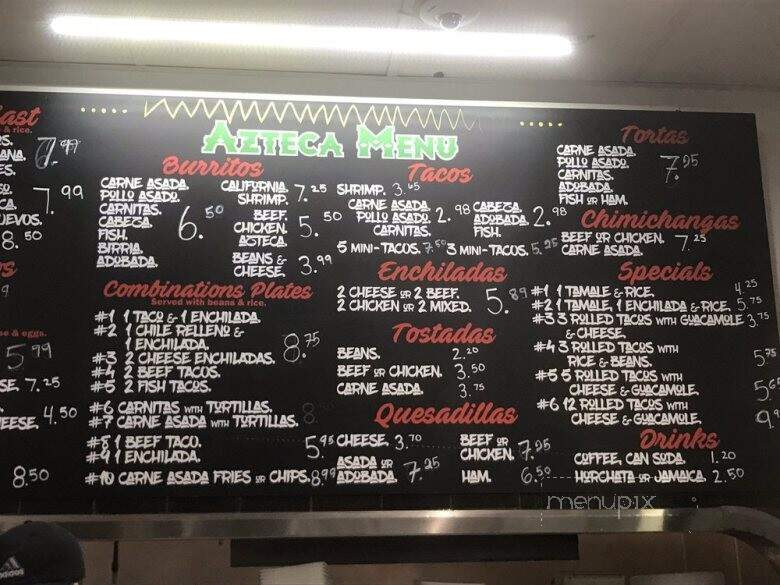 AZTECA MENU
ast
& rice.
7.99
ANA.
ES.
SO.
CA.
7.99
UEVOS.
8.50
se & eggs.
5.99
SE. 7.25
EESE. 4.50
8.50
Burritos
CARNE ASADA.
POLLO ASADO.
CARNITAS.
CABEZA.
FISH.
BIRRIA.
ADOBADA.
6.50
CALIFORNIA.
SHRIMP. 7.25
BEEF.
CHICKEN. 5.50
AZTECA.
BEANS &
CHEESE. 3.99
Combinations Plates
Served with beans & rice.
#1 1 TACO & 1 ENCHILADA.
#2 1 CHILE RELLENO &
1 ENCHILADA.
#3 2 CHEESE ENCHILADAS.
#4 2 BEEF TACOS.
#5 2 FISH TACOS.
8.75
#6 CARNITAS WITH TORTILLAS.
#7 CARNE ASADA WITH TORTILLAS.
8
#8 1 BEEF TACO.
#9 1 ENCHILADA.
5.95
#10 CARNE ASADA FRIES OR CHIPS. 8.99
Tacos
SHRIMP. 3.65
CARNE ASADA.
POLLO ASADO. 2.98
CARNITAS.
CABEZA.
ADOBADA. 2.98
FISH.
5 MINI-TACOS. 7.50 3 MINI-TACOS. 5.25
Enchiladas
2 CHEESE OR 2 BEEF.
2 CHICKEN OR 2 MIXED. 5.89
Tostadas
BEANS. 2.20
BEEF OR CHICKEN. 3.50
CARNE ASADA. 3.75
Quesadillas
CHEESE. 3.70
ASADA OR
ADOBADA. 7.25
BEEF OR
CHICKEN. 7.25
HAM. 6.50
Tortas
CARNE ASADA.
POLLO ASADO.
CARNITAS.
ADOBADA.
FISH OR HAM.
7.95
Chimichangas
BEEF OR CHICKEN.
CARNE ASADA. 7.25
Specials
#1 1 TAMALE & RICE. 4.25
#2 1 TAMALE, 1 ENCHILADA & RICE. 5.75
#3 3 ROLLED TACOS WITH GUACAMOLE 3.75
& CHEESE.
#4 3 ROLLED TACOS WITH
RICE & BEANS. 5.75
#5 5 ROLLED TACOS WITH
CHEESE & GUACAMOLE.
#6 12 ROLLED TACOS WITH
CHEESE & GUACAMOLE.
Drinks
COFFEE, CAN SODA. 1.20
HORCHATA OR JAMAICA. 2.50
menupix
adidas